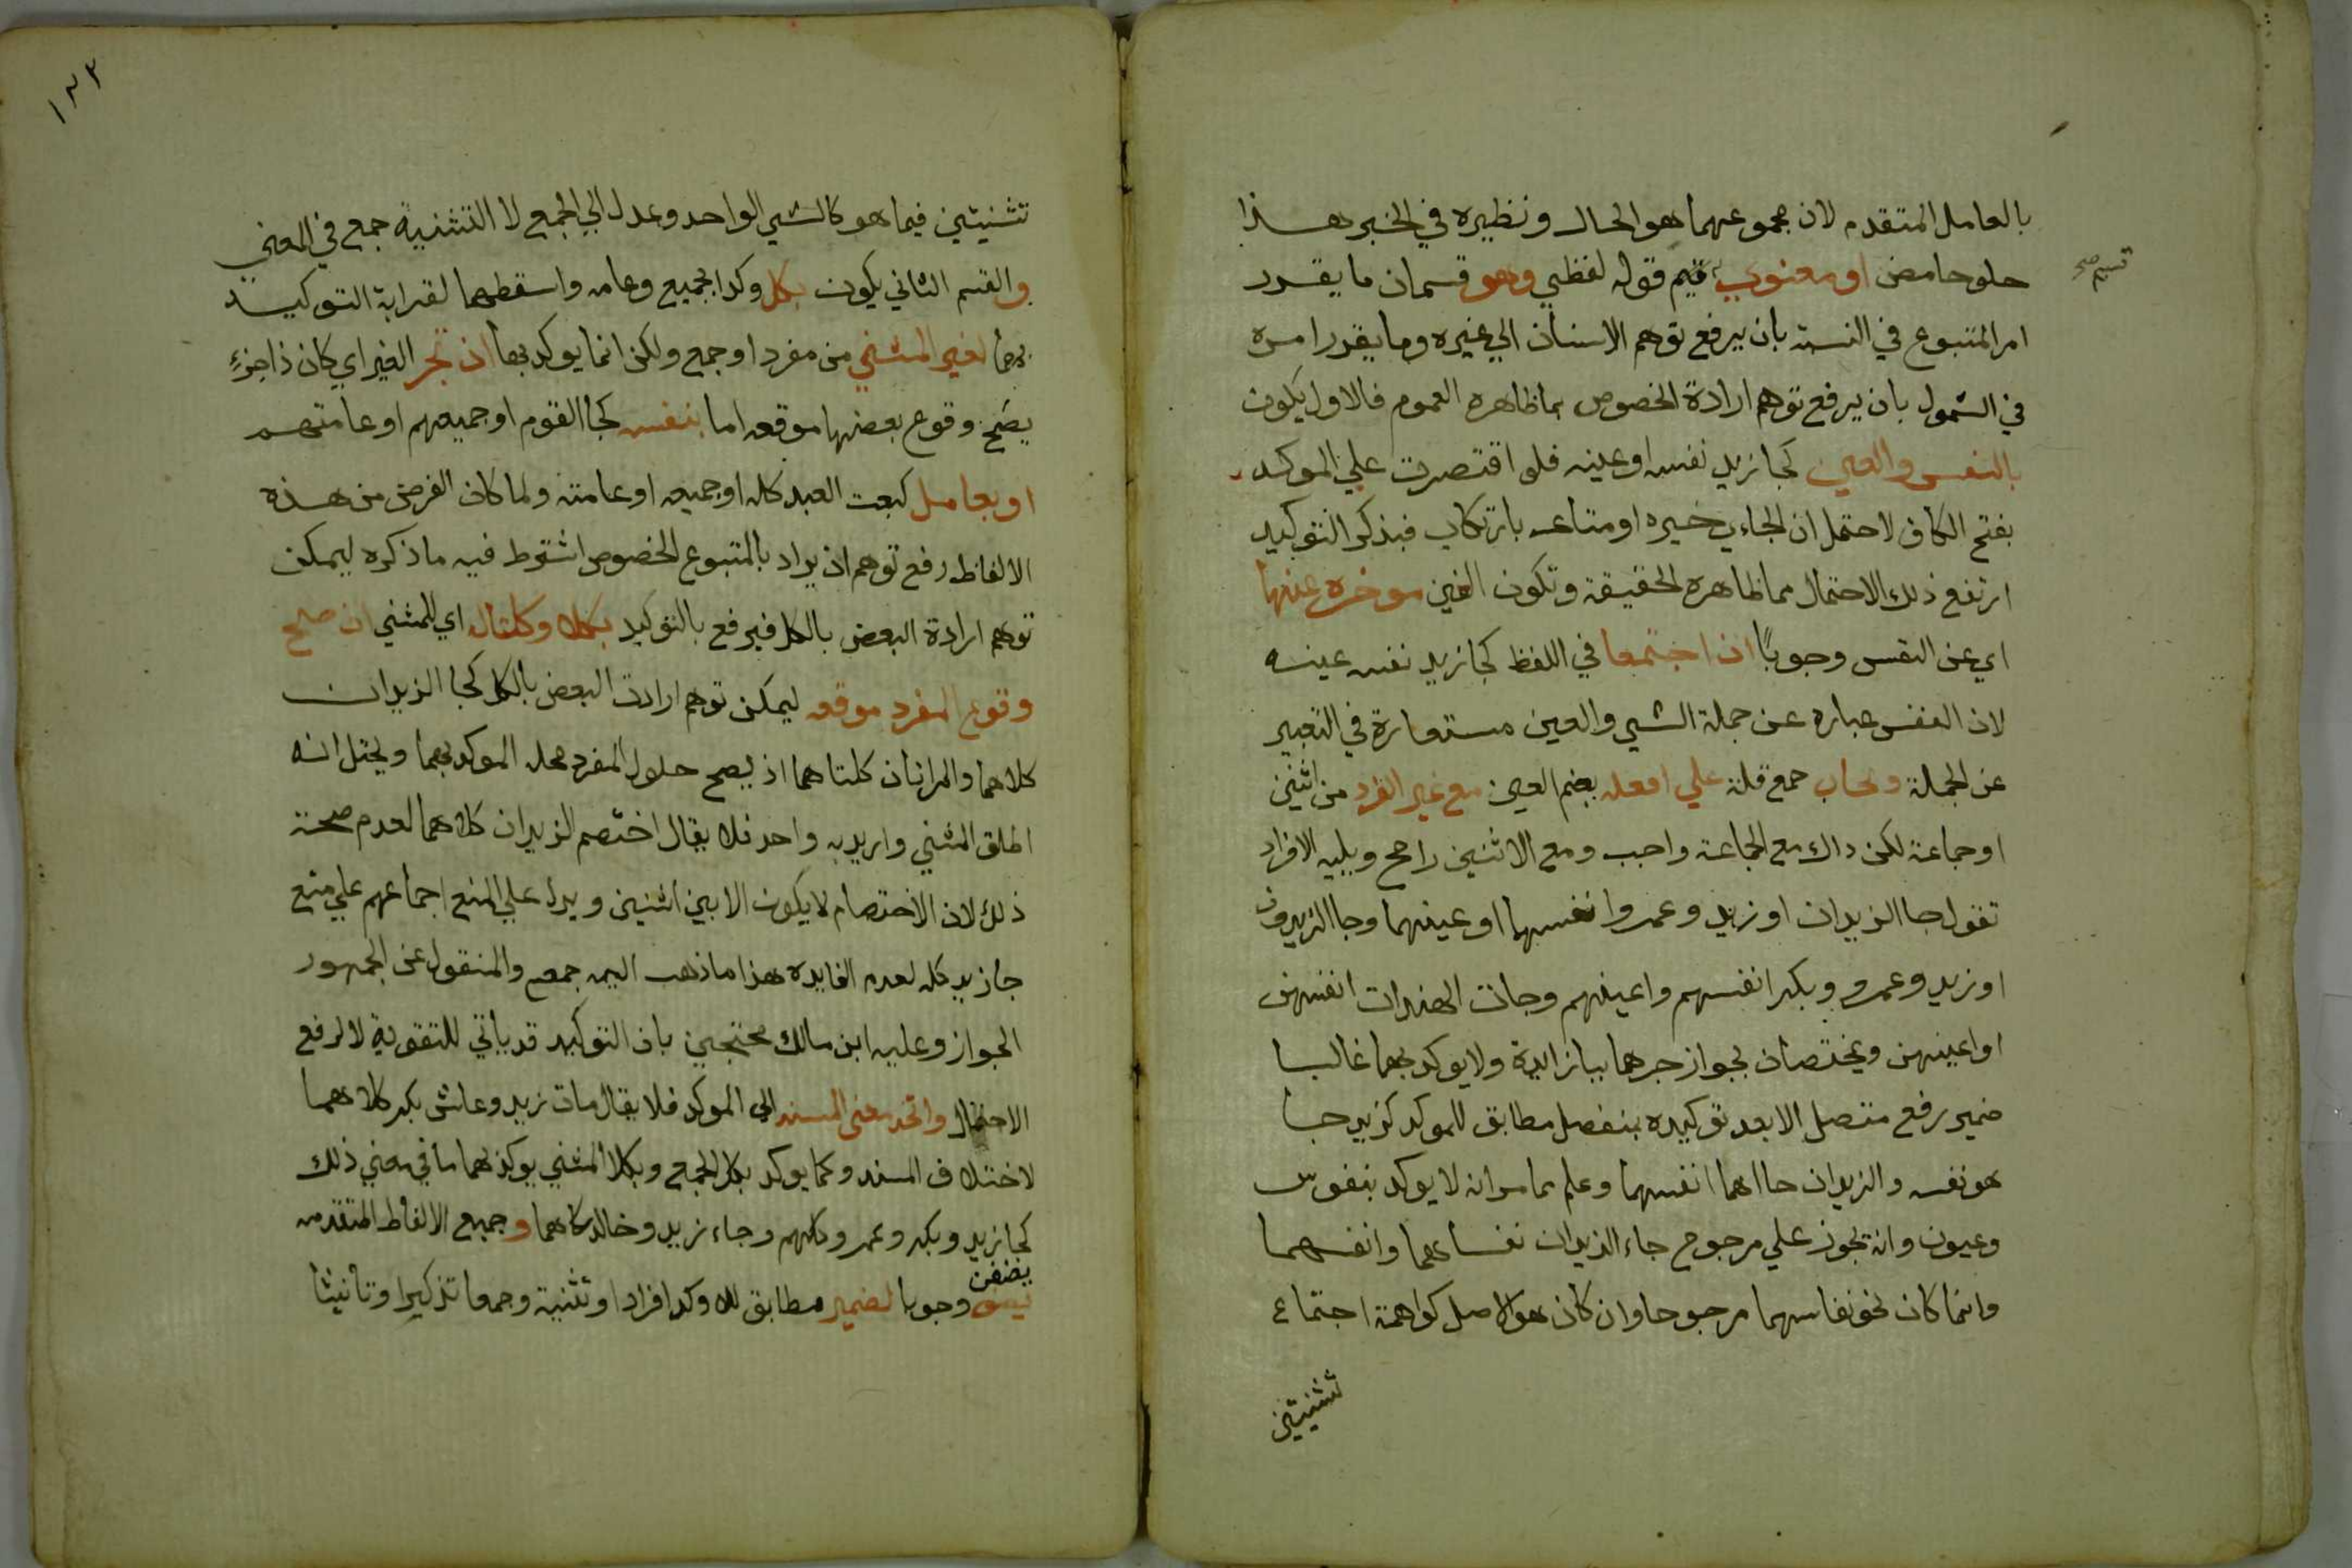 بالعامل المتقدم لان مجموعهما هو الحال ونظيره في الخبر هذا
حلو حامض او معنوي قيم قوله لفظي وهو قسمان ما يقرر
قسيم صح
امر المتبوع في النسبة بان يرفع توهم الاسناد الي غيره وما يقرر امره
في الشمول بان يرفع توهم ارادة الخصوص بما ظاهره العموم فالاول يكون
بالنفس والعين كجا زيد نفسه او عينه فلو اقتصرت علي الموكد
بفتح الكاف لاحتمل ان الجاءي خبره او متاعه بارتكاب فبذكر التوكيد
ارتفع ذلك الاحتمال مما ظاهره الحقيقة وتكون العين موخره عنها
اي عن النفس وجوبًا ان اجتمعا في اللفظ كجا زيد نفسه عينه
لان النفس عباره عن جملة الشي والعين مستعارة في التعبير
عن الجملة وتجاب جمع قلة علي افعله بضم العين مع غير الفرد من اثنين
او جماعة لكن داك مع الجماعة واجب ومع الاثنين راجح ويليه الافراد
تقول جا الزيدان او زيد وعمروا نفسهما او عينهما وجا الزيدون
او زيد وعمرو وبكر انفسهم واعينهم وجات الهندات انفسهن
او اعينهن ويختصان بجواز جرهما ببا زايدة ولا يوكد بهما غالبا
ضمير رفع متصل الا بعد توكيده بمنفصل مطابق للموكد كزيد جا
هو نفسه والزيدان جاا هما انفسهما وعلم مما مر انه لا يوكد بنفوس
وعيون وانه يجوز علي مرجوح جاء الزيدان نفساهما وانفسهما
وانما كان نحو نفاسهما مرجوحا وان كان هو الاصل كراهة اجتماع
تثنيتين
١٣٢
تثنيتين فيما هو كالشي الواحد وعدل الي الجمع لا التثنية جمع في المعني
والقسم الثاني يكون بكل وكدا جميع وعامه واسقطهما لقرابة التوكيد
بهما لغير المثني من مفرد او جمع ولكن انما يوكد بها ان تجر الغير اي كان ذا جزءٍ
يصح وقوع بعضها موقعه اما بنفسه كجا القوم او جميعهم او عامتهم
او بعامل كبعت العبد كله او جميعه او عامته ولما كان الغرض من هذه
الالفاظ رفع توهم ان يراد بالمتبوع الخصوص اشترط فيه ما ذكره ليمكن
توهم ارادة البعض بالكل فيرفع بالتوكيد بكلا وكلتا له اي للمثني ان صلح
وقوع المفرد موقعه ليمكن توهم ارادت البعض بالكل كجا الزيدان
كلاهما والمراتان كلتاهما اذ يصح حلول المفرد محل الموكد بهما ويحتمل انه
اطلق المثني واريد به واحد فلا يقال اختصم الزيدان كلاهما لعدم صحة
ذلك لان الاختصام لا يكون الا بين اثنين ويدل علي المنع اجماعهم علي منع
جا زيد كله لعدم الفايده هذا ما ذهب اليه جمع والمنقول عن الجمهور
الجواز وعليه ابن مالك محتجين بان التوكيد قد ياتي للتقوية لا لرفع
الاحتمال واتحد معنى المسند الي الموكد فلا يقال مات زيد وعاش بكر كلاهما
لاختلاف المسند وكما يوكد بكل الجمع وبكلا المثني يوكد بهما ما في معني ذلك
كجا زيد وبكر وعمر وكلهم وجاء زيد وخالد كلاهما وجميع الالفاظ المتقدمه
يضفن
وجوبا لضمير مطابق للموكد افرادا وتثنية وجمعا تذكيرا وتانيثا